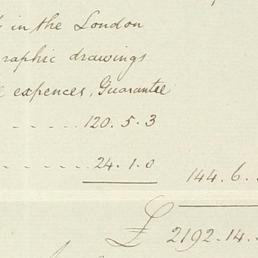 in the London
raphic drawings
expences, Guarantee
120.5.3
24.1.0
144.6.
£ 2192.14.